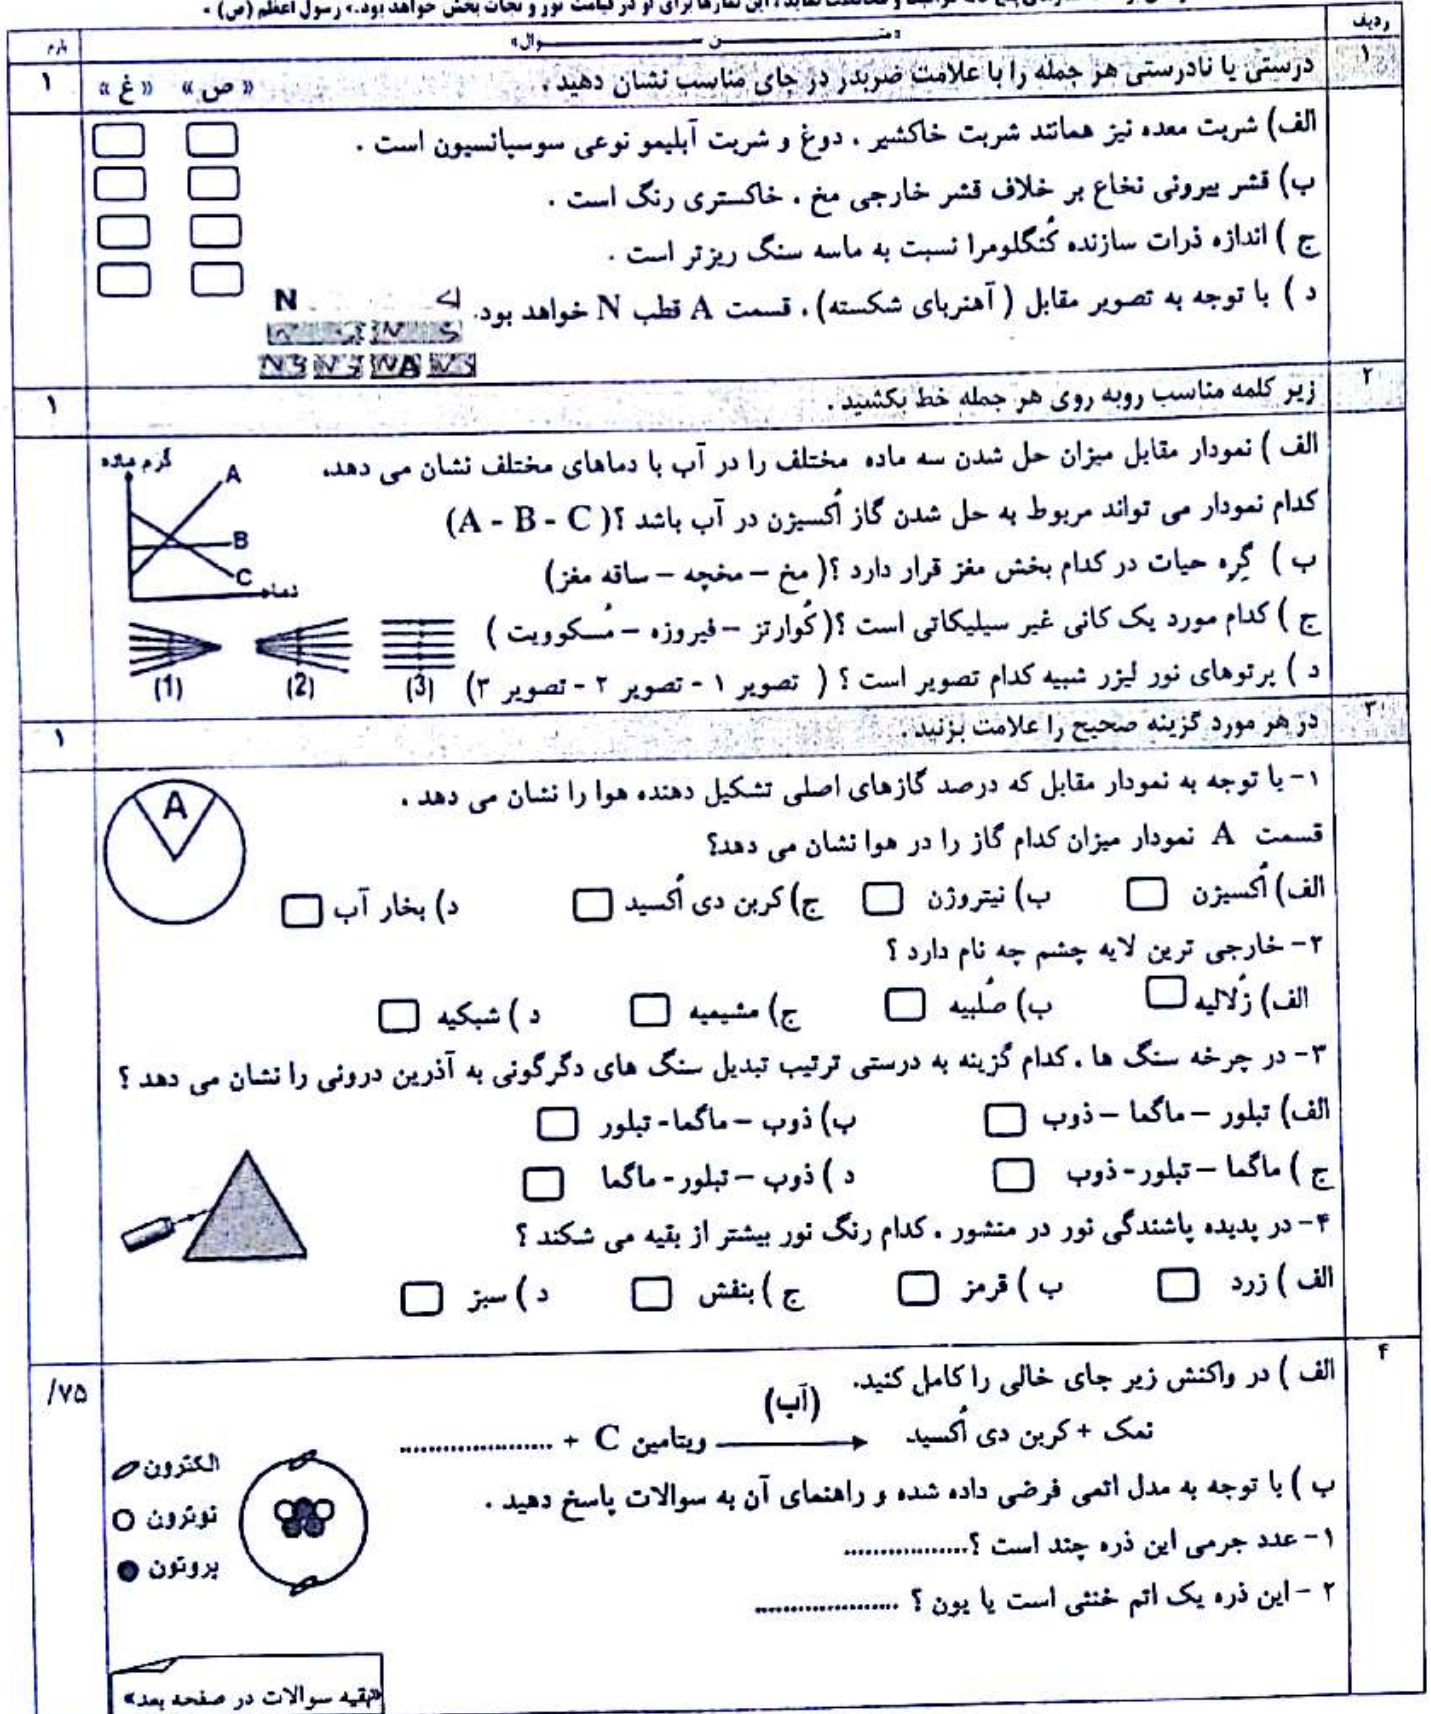 این نمازها برای او در قیامت نور و نجات بخش خواهد بود.» رسول اعظم (ص) »
ردیف
«متـــــن ســـــوال»
بارم
۱
درستی یا نادرستی هر جمله را با علامت ضربدر در جای مناسب نشان دهید .
« ص » « غ »
۱
الف) شربت معده نیز همانند شربت خاکشیر ، دوغ و شربت آبلیمو نوعی سوسپانسیون است .
ب) قشر بیرونی نخاع بر خلاف قشر خارجی مخ ، خاکستری رنگ است .
ج ) اندازه ذرات سازنده کُنگلومرا نسبت به ماسه سنگ ریزتر است .
د ) با توجه به تصویر مقابل ( آهنربای شکسته) ، قسمت A قطب N خواهد بود.
N
N S N S
N S N S N A N S
۲
زیر کلمه مناسب روبه روی هر جمله خط بکشید .
۱
الف ) نمودار مقابل میزان حل شدن سه ماده مختلف را در آب با دماهای مختلف نشان می دهد.
کدام نمودار می تواند مربوط به حل شدن گاز اُکسیژن در آب باشد ؟( A - B - C)
گرم ماده
A
B
C
دما
ب ) گِره حیات در کدام بخش مغز قرار دارد ؟( مخ – مخچه – ساقه مغز)
ج ) کدام مورد یک کانی غیر سیلیکاتی است ؟( کُوارتز – فیروزه – مُسکوویت )
د ) پرتوهای نور لیزر شبیه کدام تصویر است ؟ ( تصویر ۱ - تصویر ۲ - تصویر ۳)
(1) (2) (3)
۳
در هر مورد گزینه صحیح را علامت بزنید .
۱
۱- با توجه به نمودار مقابل که درصد گازهای اصلی تشکیل دهنده هوا را نشان می دهد .
قسمت A نمودار میزان کدام گاز را در هوا نشان می دهد؟
A
الف) اُکسیژن ب) نیتروژن ج) کربن دی اُکسید د) بخار آب
۲- خارجی ترین لایه چشم چه نام دارد ؟
الف) زُلالیه ب) صُلبیه ج) مشیمیه د ) شبکیه
۳- در چرخه سنگ ها ، کدام گزینه به درستی ترتیب تبدیل سنگ های دگرگونی به آذرین درونی را نشان می دهد ؟
الف) تبلور – ماگما – ذوب ب) ذوب – ماگما - تبلور
ج ) ماگما – تبلور - ذوب د ) ذوب – تبلور - ماگما
۴- در پدیده پاشندگی نور در منشور ، کدام رنگ نور بیشتر از بقیه می شکند ؟
الف ) زرد ب ) قرمز ج ) بنفش د ) سبز
۴
الف ) در واکنش زیر جای خالی را کامل کنید.
/۷۵
(آب)
نمک + کربن دی اُکسید ویتامین C + .....................
ب ) با توجه به مدل اتمی فرضی داده شده و راهنمای آن به سوالات پاسخ دهید .
۱- عدد جرمی این ذره چند است ؟.................
۲ - این ذره یک اتم خنثی است یا یون ؟ ....................
الکترون
نوترون
پروتون
«بقیه سوالات در صفحه بعد»